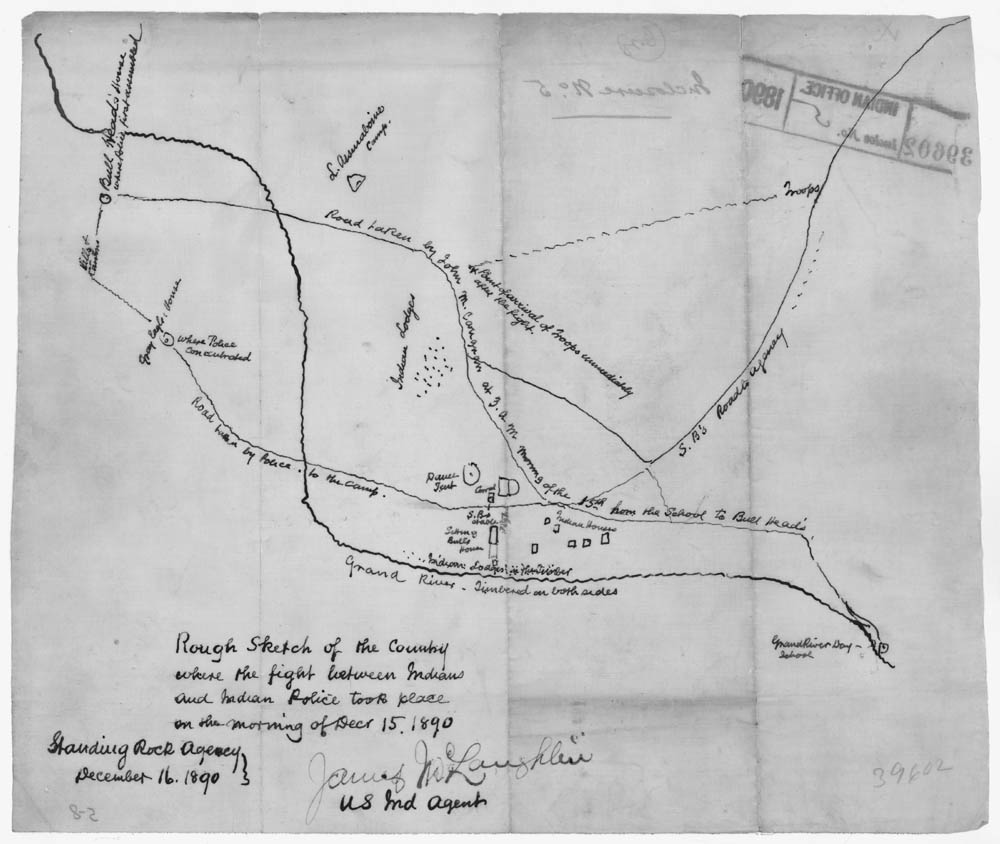 Bull Head's House
where Police first assembled
L. Assinaboine
Camp.
Troops
Road taken by John M. Carignan at 7 A.M. morning of the 15th from the School to Bull Head's
Point of arrival of Troops immediately
after the fight
Gray Eagle's House
where Police
Concentrated
Indian Lodges
S.B's Road to Agency
Road taken by Police to the Camp.
Dance
Tent
Corral
S.B's
stable
Sitting
Bull's
House
Indian Houses
Indian Lodges in the Timber
Grand River - Timbered on both sides
Grand River Day -
School
Rough Sketch of the Country
where the fight between Indians
and Indian Police took place
on the morning of Decr 15, 1890
Standing Rock Agency
December 16. 1890
James McLaughlin
US Ind Agent
39602
Inclosure No. 5
INDIAN OFFICE
39602
Inclos No. 5
1890
8-2